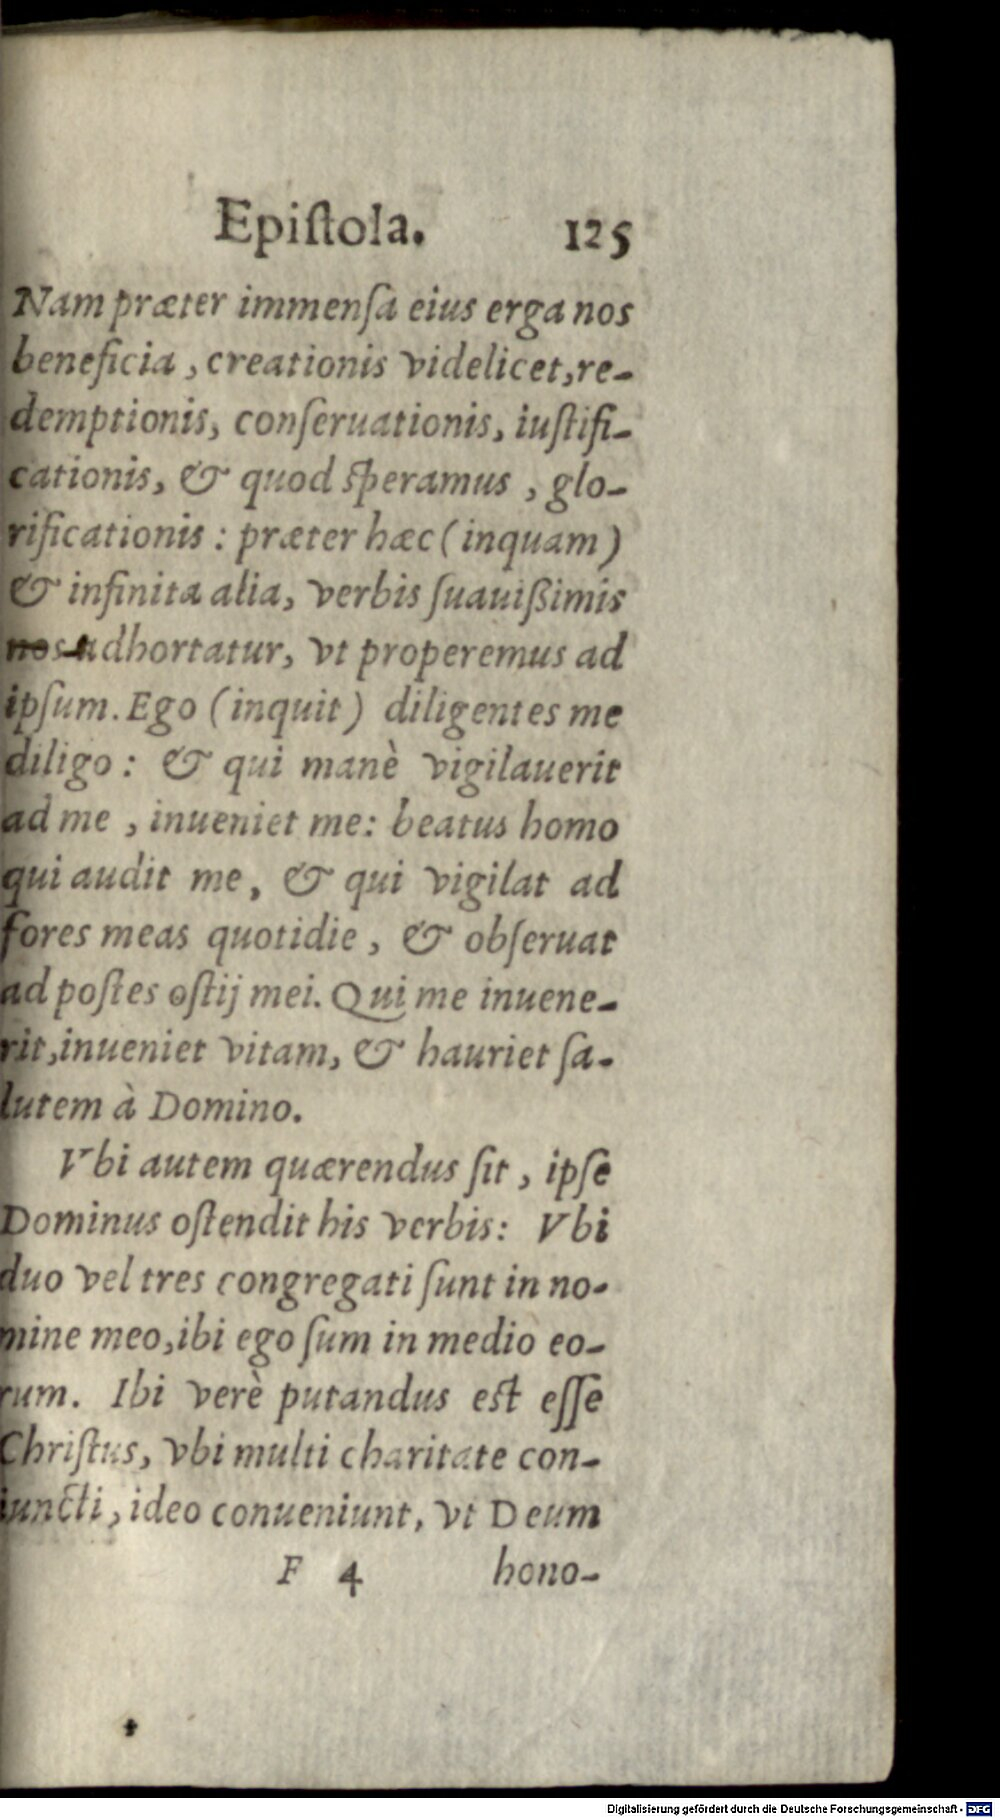 Epiſtola. 125
Nam præter immenſa eius erga nos
beneficia, creationis videlicet, re-
demptionis, conſeruationis, iuſtifi-
cationis, & quod ſperamus, glo-
rificationis: præter hæc (inquam)
& infinita alia, verbis ſuauißimis
nos adhortatur, vt properemus ad
ipſum. Ego (inquit) diligentes me
diligo: & qui manè vigilauerit
ad me, inueniet me: beatus homo
qui audit me, & qui vigilat ad
fores meas quotidie, & obſeruat
ad poſtes oſtij mei. Qui me inuene-
rit, inueniet vitam, & hauriet ſa-
lutem à Domino.
Vbi autem quærendus ſit, ipſe
Dominus oſtendit his verbis: Vbi
duo vel tres congregati ſunt in no-
mine meo, ibi ego ſum in medio eo-
rum. Ibi verè putandus eſt eſſe
Chriſtus, vbi multi charitate con-
iuncti, ideo conueniunt, vt Deum
F 4 hono-
Digitalisierung gefördert durch die Deutsche Forschungsgemeinschaft - DFG